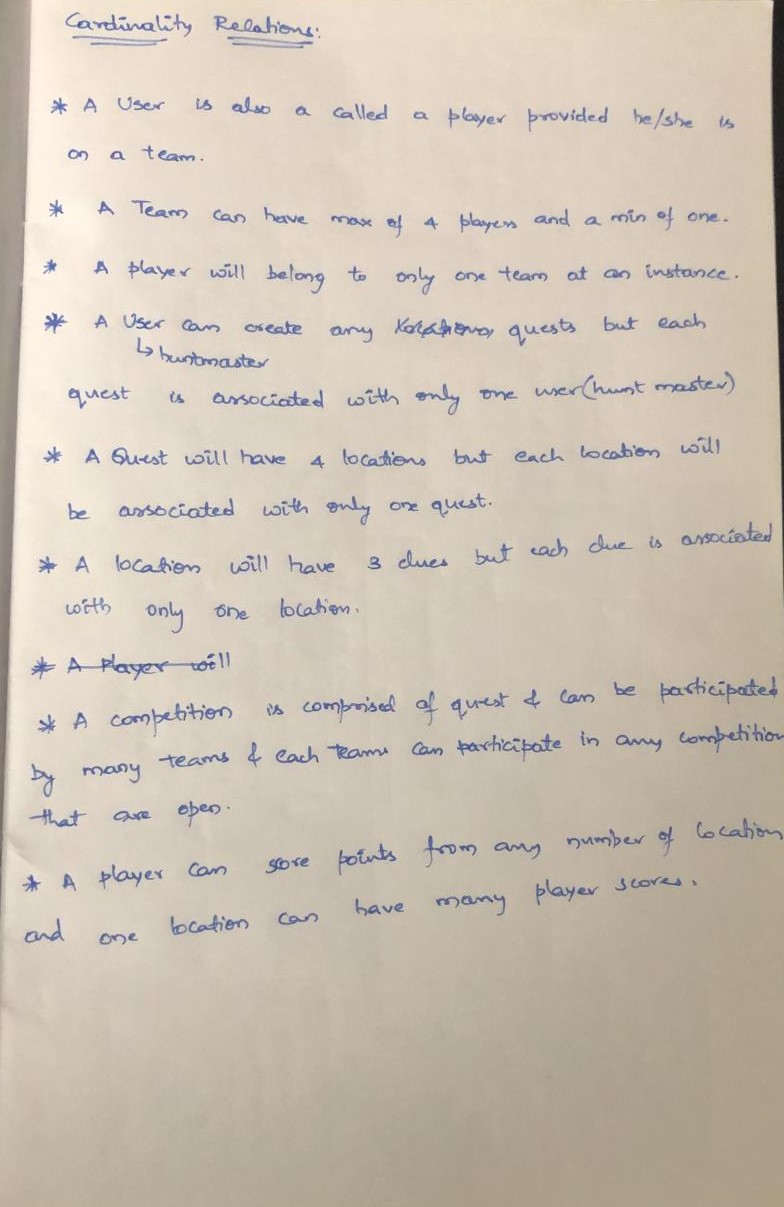 Cardinality Relations:
* A User is also a called a player provided he/she is
on a team.
* A Team can have max of 4 players and a min of one.
* A player will belong to only one team at an instance.
* A User can create any quests but each
↳ huntmaster
quest is associated with only one user (hunt master)
* A Quest will have 4 locations but each location will
be associated with only one quest.
* A location will have 3 clues but each clue is associated
with only one location.
* A Player will
* A competition is comprised of quest & can be participated
by many teams & each teams can participate in any competition
that are open.
* A player can score points from any number of location
and one location can have many player scores.